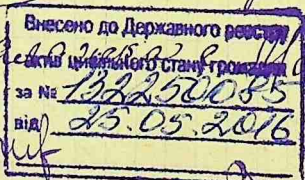 Внесено до Державного реєстру
актів цивільного стану громадян
за № 132250085
від 25.05.2016